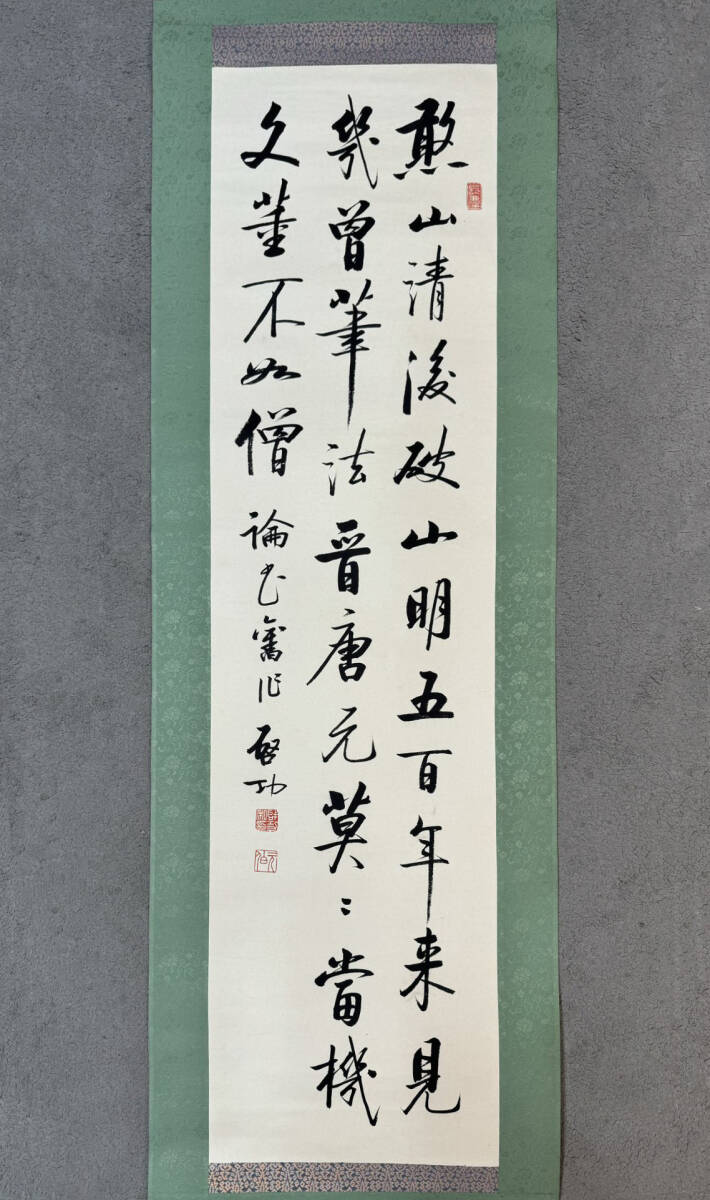 憨山清後破山明五百年来見
幾曾筆法晋唐元莫二當機
文董不如僧 論書舊作 啓功